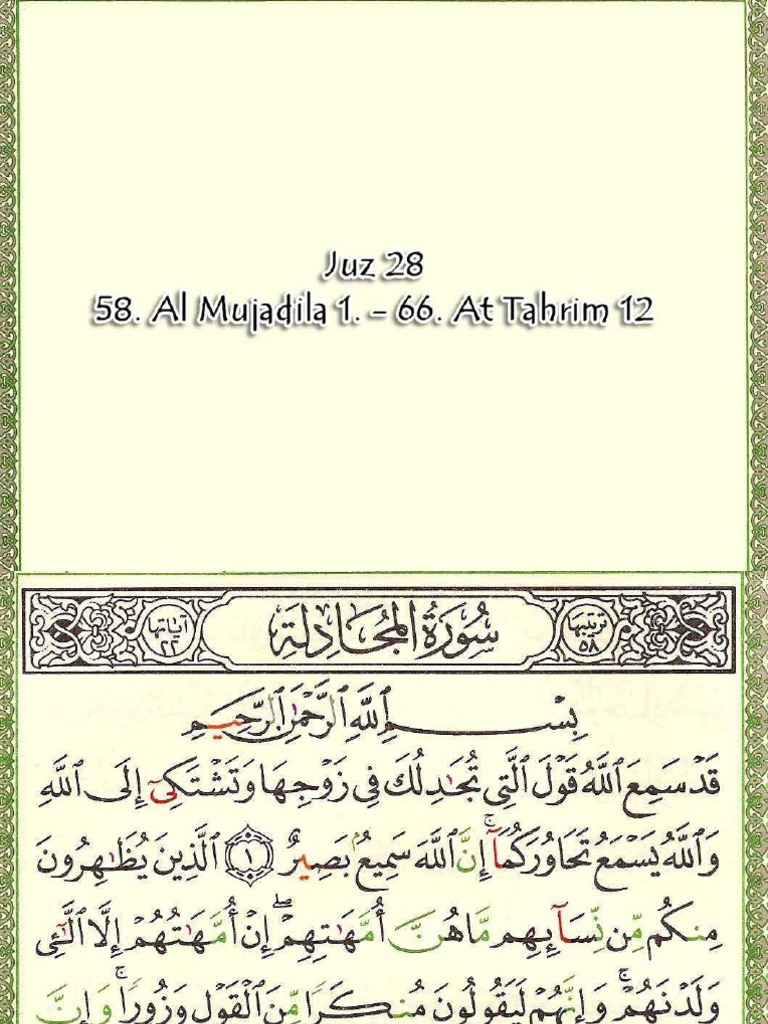 Juz 28
58. Al Mujadila 1. - 66. At Tahrim 12
ترتيبها ٥٨ سُورَةُ المُجَادِلَة آياتها ٢٢
بِسْمِ ٱللَّهِ ٱلرَّحْمَٰنِ ٱلرَّحِيمِ
قَدْ سَمِعَ ٱللَّهُ قَوْلَ ٱلَّتِي تُجَٰدِلُكَ فِي زَوْجِهَا وَتَشْتَكِيٓ إِلَى ٱللَّهِ
وَٱللَّهُ يَسْمَعُ تَحَاوُرَكُمَآۚ إِنَّ ٱللَّهَ سَمِيعٌۢ بَصِيرٌ ١ ٱلَّذِينَ يُظَٰهِرُونَ
مِنكُم مِّن نِّسَآئِهِم مَّا هُنَّ أُمَّهَٰتِهِمْۖ إِنْ أُمَّهَٰتُهُمْ إِلَّا ٱلَّٰٓـِٔي
وَلَدْنَهُمْۚ وَإِنَّهُمْ لَيَقُولُونَ مُنكَرًا مِّنَ ٱلْقَوْلِ وَزُورًاۚ وَإِنَّ